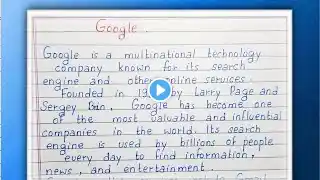 Google.
Google is a multinational technology
company known for its search
engine and other online services.
Founded in by Larry Page and
Sergey Brin, Google has become one
of the most valuable and influential
companies in the world. Its search
engine is used by billions of people
every day to find information,
news, and entertainment.